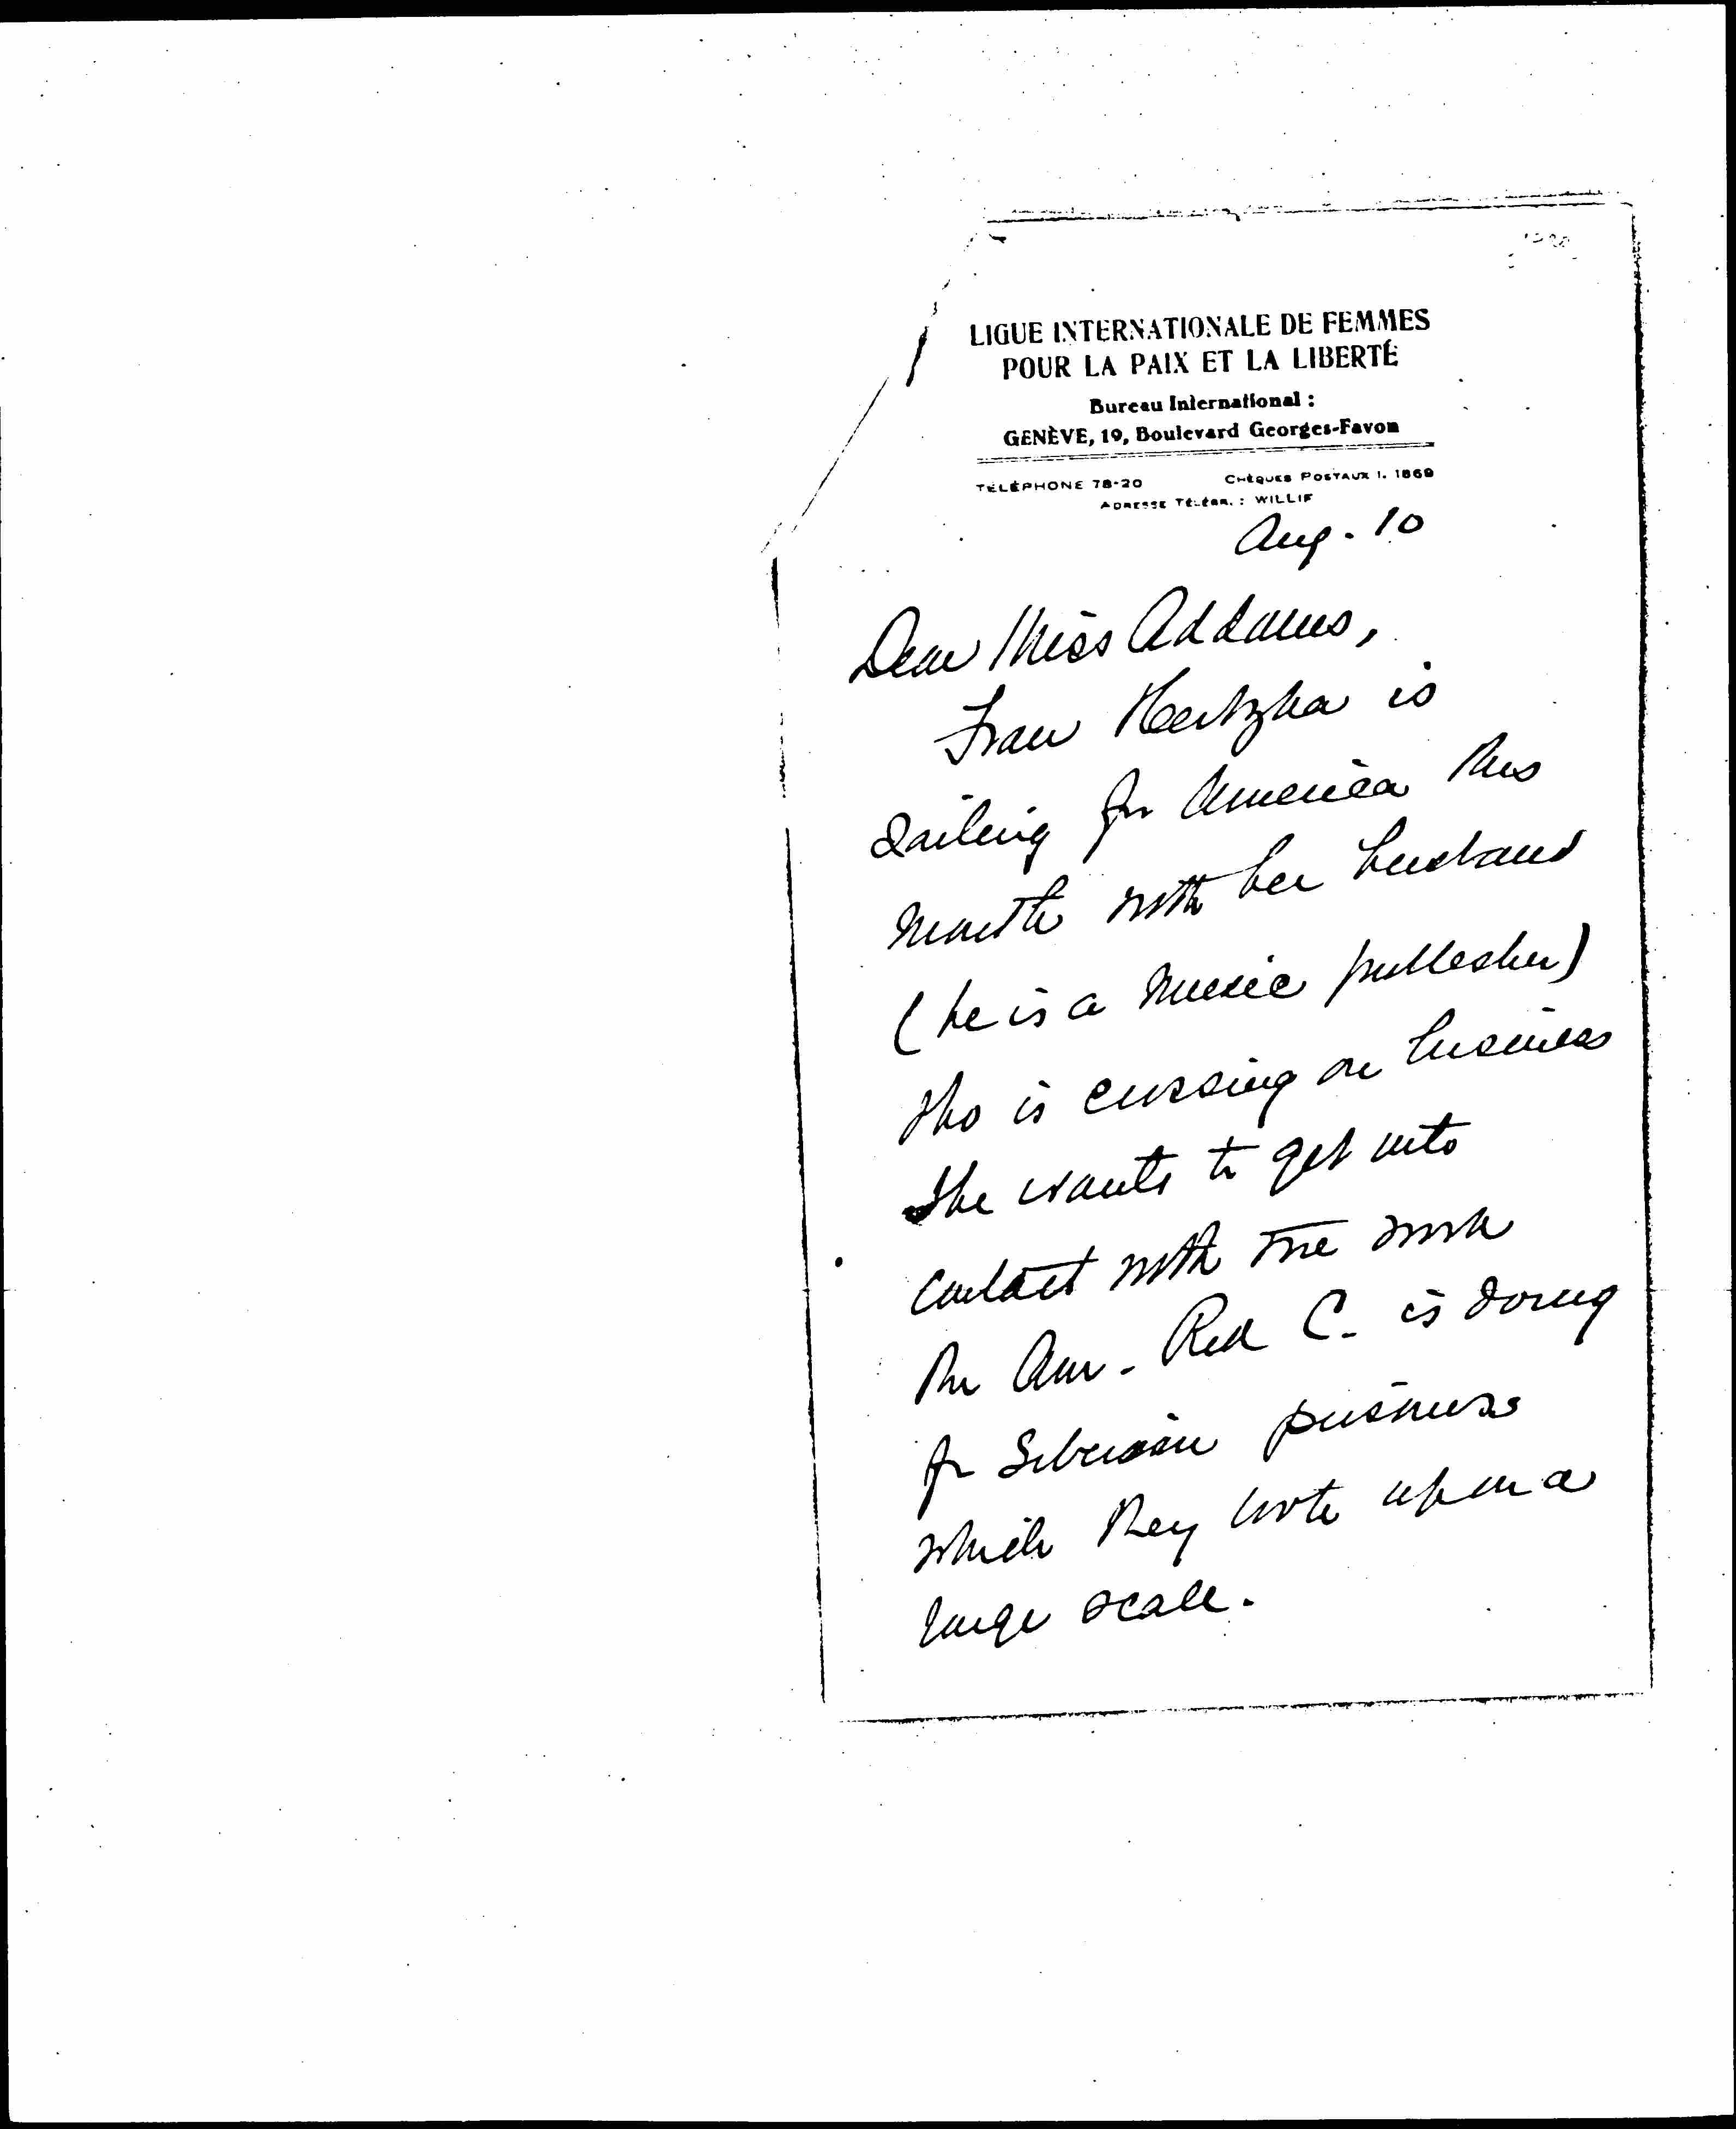 LIGUE INTERNATIONALE DE FEMMES
POUR LA PAIX ET LA LIBERTÉ
Bureau International :
GENÈVE, 19, Boulevard Georges-Favon
TÉLÉPHONE 78-20 CHÈQUES POSTAUX I. 1869
ADRESSE TÉLÉGR. : WILLIF
Aug. 10
Dear Miss Addams,
Frau Hertzka is
sailing for America this
month with her husband
(he is a music publisher)
who is crossing on business
She wants to get into
contact with the work
the Am. Red C. is doing
for Siberian prisoners
which they wrote upon a
large scale.